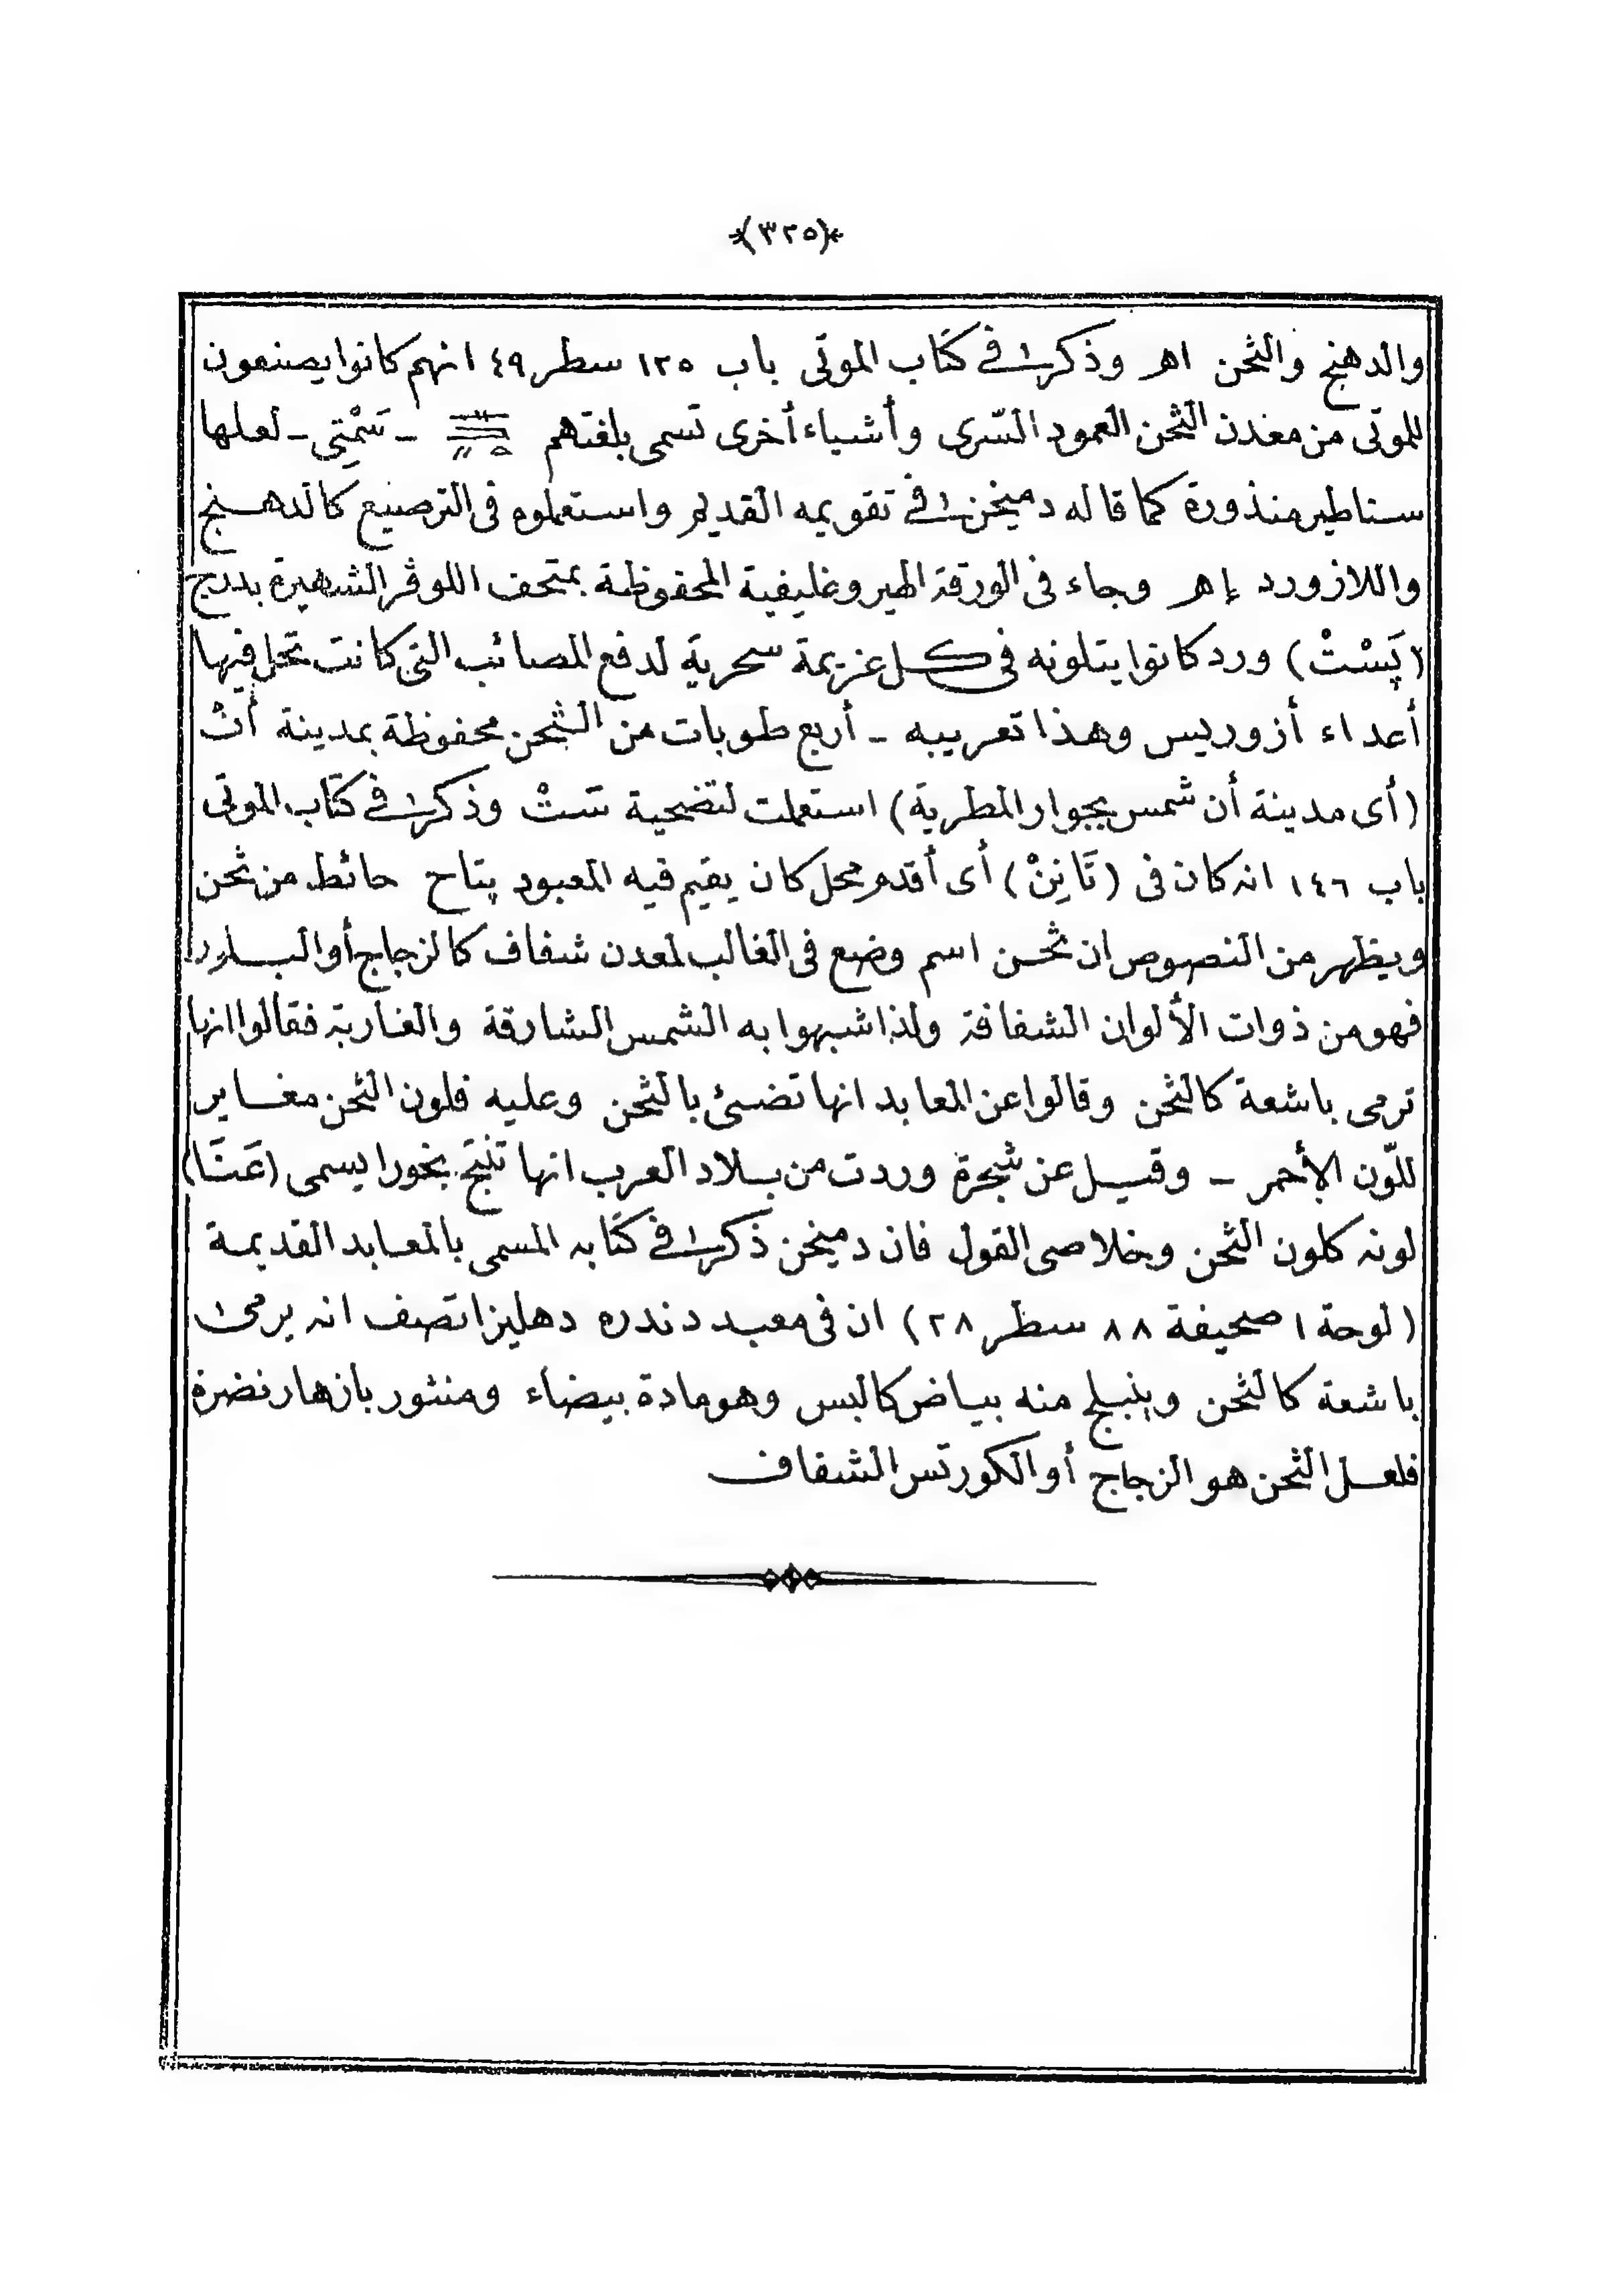 (٣٢٥)
والدهنج والثحن اهـ وذكر في كتاب الموتى باب ١٢٥ سطر ٤٩ انهم كانوا يصنعون
للموتى من معدن الثحن العمود السّرى وأشياء أخرى تسمى بلغتهم ـ تسْمِتِى ـ لعلها
سناطير منذورة كما قاله دميخن في تقويمه القديم واستعملوه فى الترصيع كالدهنج
واللازورد إهـ وجاء فى الورقة الهيروغليفية المحفوظة بمتحف اللوڤر الشهيرة بدرج
(پَسْتْ) ورد كانوا يتلونه فى كل عزيمة سحرية لدفع المصائب التى كانت تحل فيها
أعداء أزوريس وهذا تعريبه ـ أربع طوبات من الثحن محفوظة بمدينة أنْ
(أى مدينة أن شمس بجوار المطرية) استعملت لتضحية سَتْ وذكر في كتاب الموتى
باب ١٤٦ انه كان فى (تَانِنْ) أى أقدم محل كان يقيم فيه المعبود پتاح حائط من ثحن
ويظهر من النصوص ان ثحن اسم وضع فى الغالب لمعدن شفاف كالزجاج أو البلور
فهو من ذوات الألوان الشفافة ولذا شبهوا به الشمس الشارقة والغاربة فقالوا انها
ترمى باشعة كالثحن وقالوا عن المعابد انها تضئ بالثحن وعليه فلون الثحن مغاير
للّون الأحمر ـ وقيل عن شجرة وردت من بلاد العرب انها تنتج بخورا يسمى (عَنْتَا)
لونه كلون الثحن وخلاصى القول فان دميخن ذكر في كتابه المسمى بالمعابد القديمة
(لوحة ١ صحيفة ٨٨ سطر ٢٨) ان فى معبد دندره دهليزا تصف انه يرمى
باشعة كالثحن وينبلج منه بياض كالبس وهو مادة بيضاء ومنثور بازهار نضرة
فلعل الثحن هو الزجاج أو الكورتس الشفاف